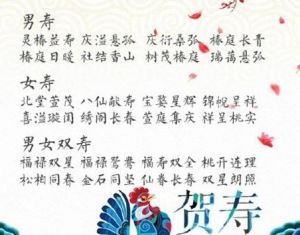 男寿
灵椿益寿 庆溢悬弧 庆衍桑弧 椿庭长青
椿庭日暖 社结香山 树茂椿庭 瑞蔼悬弧
女寿
北堂萱茂 八仙献寿 宝婺星辉 锦帨呈祥
喜溢璇闺 绣阁长春 萱庭集庆 祥呈桃实
男女双寿
福禄双星 福禄鸳鸯 福寿双全 桃开连理
松柏同春 金石同坚 仙眷长春 双星朗照
贺寿